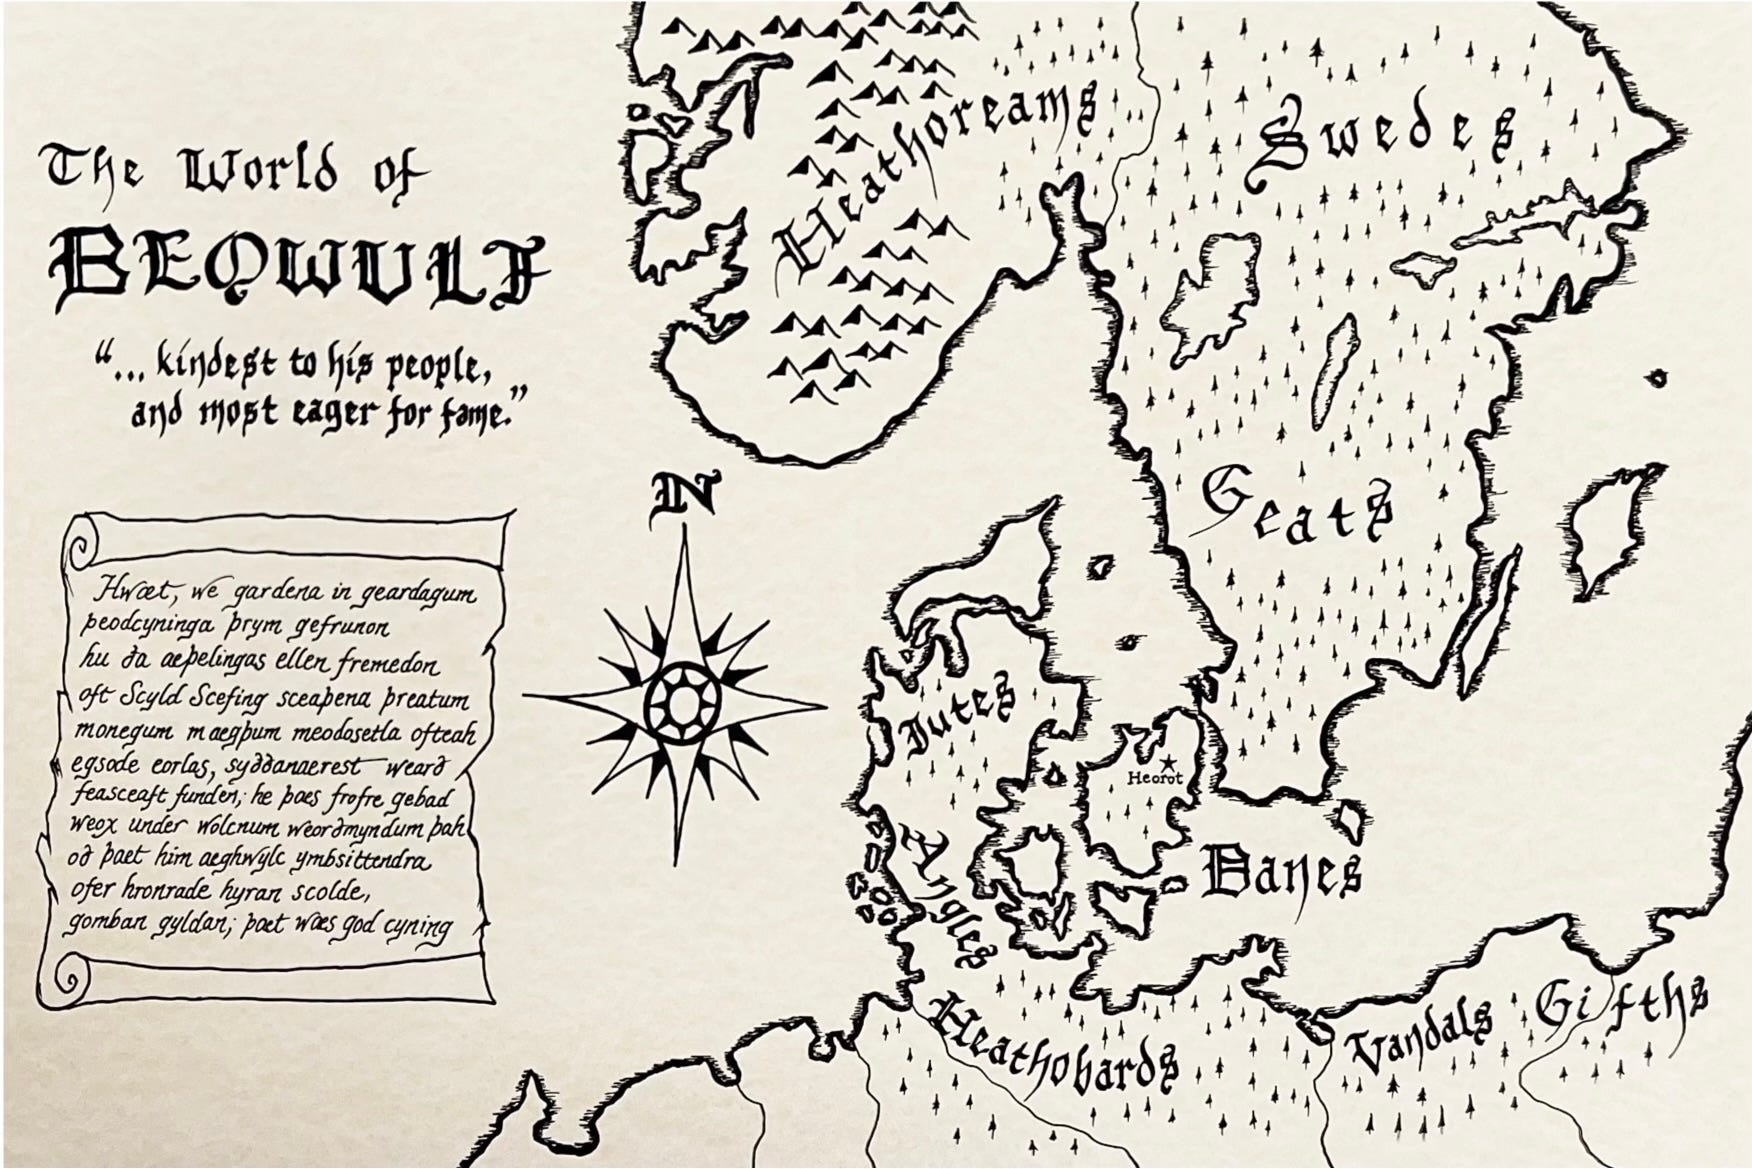 The World of
BEOWULF
“... kindest to his people,
and most eager for fame.”
Hwæt, we gardena in geardagum
þeodcyninga þrym gefrunon
hu ða aeþelingas ellen fremedon
oft Scyld Scefing sceaþena þreatum
monegum maegþum meodosetla ofteah
egsode eorlas, syððanaerest weard
feasceaft funden; he þaes frofre gebad
weox under wolcnum weorðmyndum þah
oð þaet him aeghwylc ymbsittendra
ofer hronrade hyran scolde,
gomban gyldan; þaet wæs god cyning
N
Heathoreams
Swedes
Geats
Jutes
Heorot
Angles
Danes
Heathobards
Vandals
Gifths